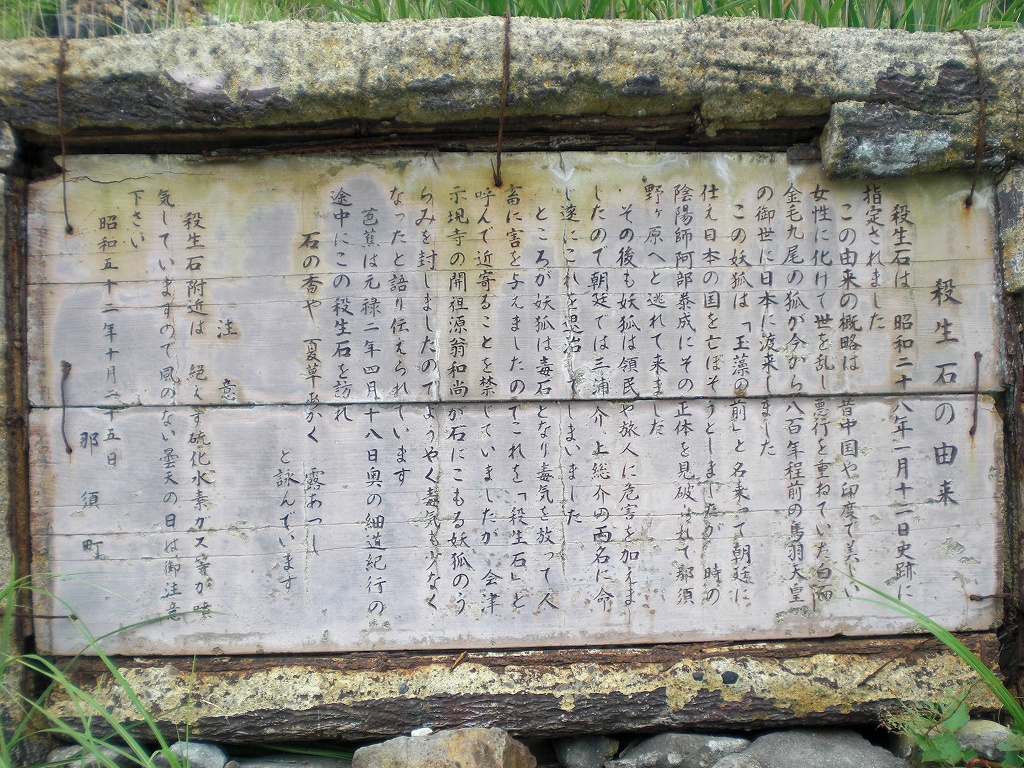 殺生石の由来
殺生石は 昭和二十八年一月十二日史跡に
指定されました
この由来の概略は 昔中国や印度で美しい
女性に化けて世を乱し悪行を重ねていた白面
金毛九尾の狐が今から八百年程前の鳥羽天皇
の御世に日本に渡来しました
この妖狐は「玉藻の前」と名乗って朝廷に
仕え日本の国を亡ぼそうとしましたが 時の
陰陽師阿部泰成にその正体を見破られて那須
野ヶ原へと逃れて来ました
その後も妖狐は領民や旅人に危害を加えま
したので朝廷では三浦介 上総介の両名に命
じ遂にこれを退治してしまいました
ところが妖狐は毒石となり毒気を放って人
畜に害を与えましたのでこれを「殺生石」と
呼んで近寄ることを禁じていましたが 会津
示現寺の開祖源翁和尚が石にこもる妖狐のう
らみを封じましたのでようやく毒気も少なく
なったと語り伝えられています
芭蕉は元禄二年四月十八日奥の細道紀行の
途中にこの殺生石を訪れ
石の香や 夏草あかく 露あつし
と詠んでいます
注 意
殺生石附近は 絶えず硫化水素ガス等が噴
気していますので風のない曇天の日は御注意
下さい
昭和五十二年十月二十五日
那須町